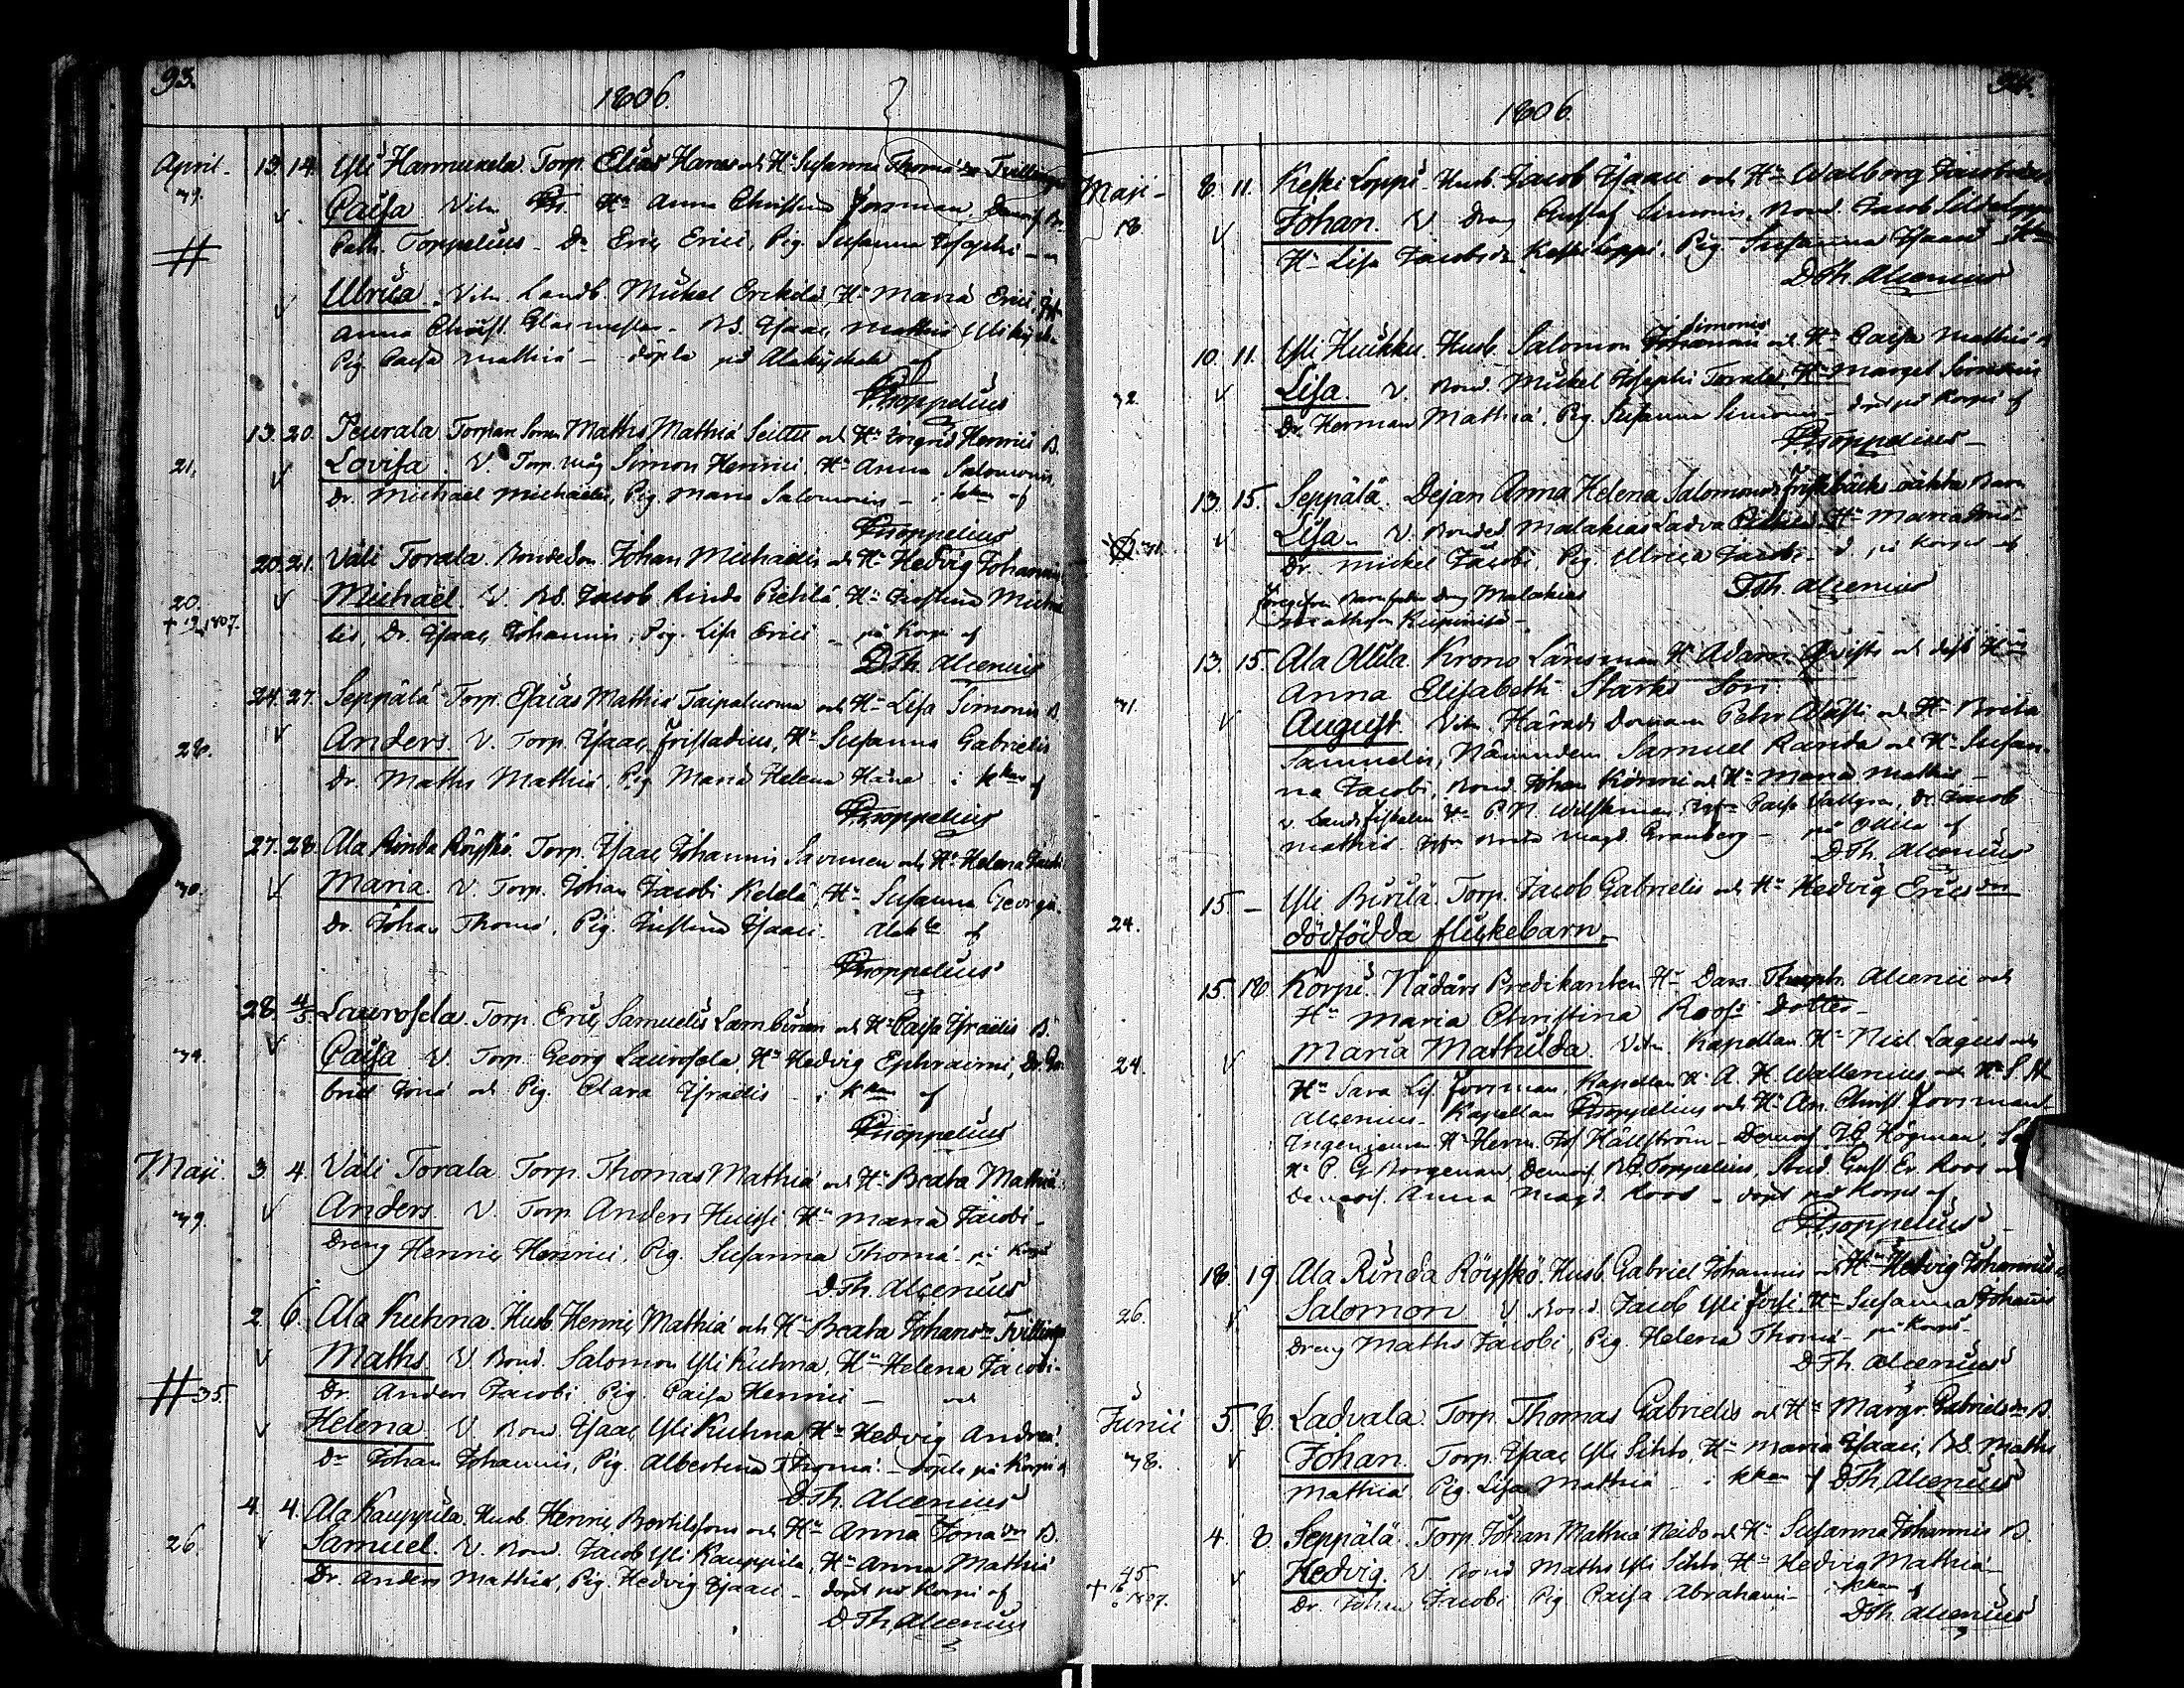 93.
1806.
April. 13. 14. Yli Hannukaela. Torp. Elias Hanes och H:u Susanna Thomæ dr Tvillingar
39. Caisa Vitn. H:u Anna Christina Forsman
Cath. Toppelius - Dr. Eric Erici, Pig. Susanna Josephi
Ulrica. Vitn. Landb. Mickel Erkkilä, H:u Maria Erici,
Anna Christ. Glasmester - BS. Isaac Mathiæ Ylikyh
Pig. Caisa Mathiæ - döpta på Alakyhälä af
Toppelius
13. 20. Peurala Torpare Son Maths Mathiæ Seittu och H:u Ingrid Henrici B.
21. Lovisa. V. Torp. måg Simon Henrici, H:u Anna Salomonis
Dr. Michaël Michaëlis, Pig. Maria Salomonis - i kkan af
Toppelius
20. 21. Väli Torala. Bondeson Johan Michaëlis och H:u Hedvig Johannis
20. Michaël. V. BS. Jacob Rinda Pichlä, H:u Christina Micha
+ 1807. lis, Dr. Isaac Johannis, Pig. Lisa Erici - på Korpi af
D Th. Alcenius
24. 27. Seppälä Torp. Esaias Mathiæ Taipaluoma och H:u Lisa Simonis B.
28. Anders. V. Torp. Isaac Fristadius, H:u Susanna Gabrielis
Dr. Maths Mathiæ, Pig. Maria Helena Häne i kkan af
Toppelius
27. 28. Ala Rinda Röyskö. Torp. Isaac Johannis Savinen och H:u Helena Jacobi
30. Maria. V. Torp. Johan Jacobi Ketelä, H:u Susanna Georgii
Dr. Johan Thomæ, Pig. Christina Isaaci - af
Toppelius
28. 4/5. Laurosela. Torp. Eric Samuelis och H:u Caisa Israelis B.
34. Caisa V. Torp. Georg Laurosela, H:u Hedvig Ephraimi, Dr. Ga
briel Jonæ och Pig. Clara Israelis - i kkan af
Toppelius
Maji. 3. 4. Väli Torala. Torp. Thomas Mathiæ och H:u Beata Mathiæ
39. Anders V. Torp. Anders Huissi H:u Maria Jacobi -
Dreng Henric Henrici, Pig. Susanna Thomæ - på Korpi
D Th. Alcenius
2. 6. Ala Kuhna. Husb. Henric Mathiæ och H:u Beata Johans dr Tvillingar
Maths V. Bond. Salomon Yli Kuhna, H:u Helena Jacobi -
35. Dr. Anders Jacobi, Pig. Caisa Henrici - och
Helena. V. Bond. Isaac Yli Kuhna H:u Hedvig Andreæ.
Dr. Johan Johannis, Pig. Albertina Thomæ - döpta på Korpi af
D Th. Alcenius
4. 4. Ala Kauppila. Husb. Henric Bertilsson och H:u Anna Jonæ dr B.
26 Samuel. V. Bond. Jacob Yli Kauppila, H:u Anna Mathiæ
Dr. Anders Mathiæ, Pig. Hedvig Isaaci - döpt på Korpi af
D Th. Alcenius
94.
1806.
Maji - 8. 11. Keski Loppi. Husb. Jacob Isaaci och H:u Walborg Jacobs dr
18 Johan. V. Dreng Gustaf Simonis, Bond. Jacob
H:u Lisa Jacobs dr Keski Loppi, Pig. Susanna Isaaci
D Th. Alcenius
10. 11. Yli Huikku. Husb. Salomon Simonis och H:u Caisa Mathiæ
32. Lisa. V. Bond. Mickel Josephi Torala H:u Marget Simonis
Dr. Herman Mathiæ, Pig. Susanna Simonis - döpt på Korpi af
Toppelius -
13. 15. Seppälä. Dejan Anna Helena Salomonis oäkta Barn
31. Lisa. V. Bondes Malakias Ladva H:u Maria
Dr. Mickel Jacobi, Pig. Ulrica Jacobi - d. på Korpi af
Föregifven Barnfader Dreng Malakias Th. Alcenius
Mathsson
13. 15. Ala Ollila. Krono Länsman H:r Adam Qvists och dess H:u
31. Anna Elisabeth Starks Son
August. Vitn. Härads Domaren Petter och H:u Brita
Samuelis, Nämndem. Samuel Randa och H:u Susan
na Jacobi, Bond. Johan och H:u Maria Mathiæ -
v. Landsfiskalen H:r P. N. Caisa Vallgren, Dr. Jacob
Mathiæ. Magd. Granberg - på Ollila af
D Th. Alcenius
15 - Yli Burilä. Torp. Jacob Gabrielis och H:u Hedvig Erics dr
24. dödfödda flickebarn.
15. 18 Korpi. Nådårs Predikanten H:r Dan. Theoph. Alcenii och
H:u Maria Christina Roos dotter -
24. Maria Mathilda. Vitn. Kapellan H:r Niel Lagus och
H:u Sara Lis. Forsman, Kapellan H:r A. H. Wallenius och H:u S. M.
Alcenius - Kapellan Toppelius och H:u An. Christ. Forsman
Ingenieuren H:r Herm. Jos. Hällström - Demois. Högman,
H:r P. G. Borgenan, Demois. Toppelius, Stud. Gust. Er. Roos och
Demois. Anna Magd. Roos - döpt på Korpi af
Toppelius -
18 19. Ala Rinda Röyskö. Husb. Gabriel Johannis och H:u Hedvig Johannis
26. Salomon V. Bond. Jacob Yli H:u Susanna Johannis
Dreng Maths Jacobi, Pig. Helena Thomæ - på Korpi -
D Th. Alcenius
Junii 5. 8. Ladvala. Torp. Thomas Gabrielis och H:u Margr. Gabriels dr B.
38. Johan. Torp. Isaac Yli Sihto, H:u Maria Isaaci, BS. Maths
Mathiæ. Pig. Lisa Mathiæ - i kkan af D Th. Alcenius
4. 8. Seppälä. Torp. Johan Mathiæ Neido och H:u Susanna Johannis B.
45 Hedvig. V. Bond Maths Yli Sihto H:u Hedvig Mathiæ -
+ 1807. Dr. Johan Jacobi Pig. Caisa Abrahami - i kkan af
D Th. Alcenius